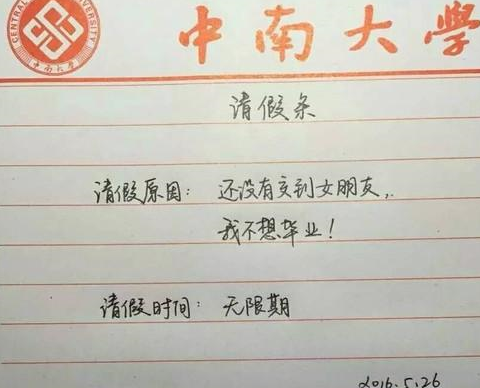 CENTRAL UNIVERSITY
中南大学
中南大學
请假条
请假原因：还没有交到女朋友，
我不想毕业！
请假时间：无限期
2016.5.26